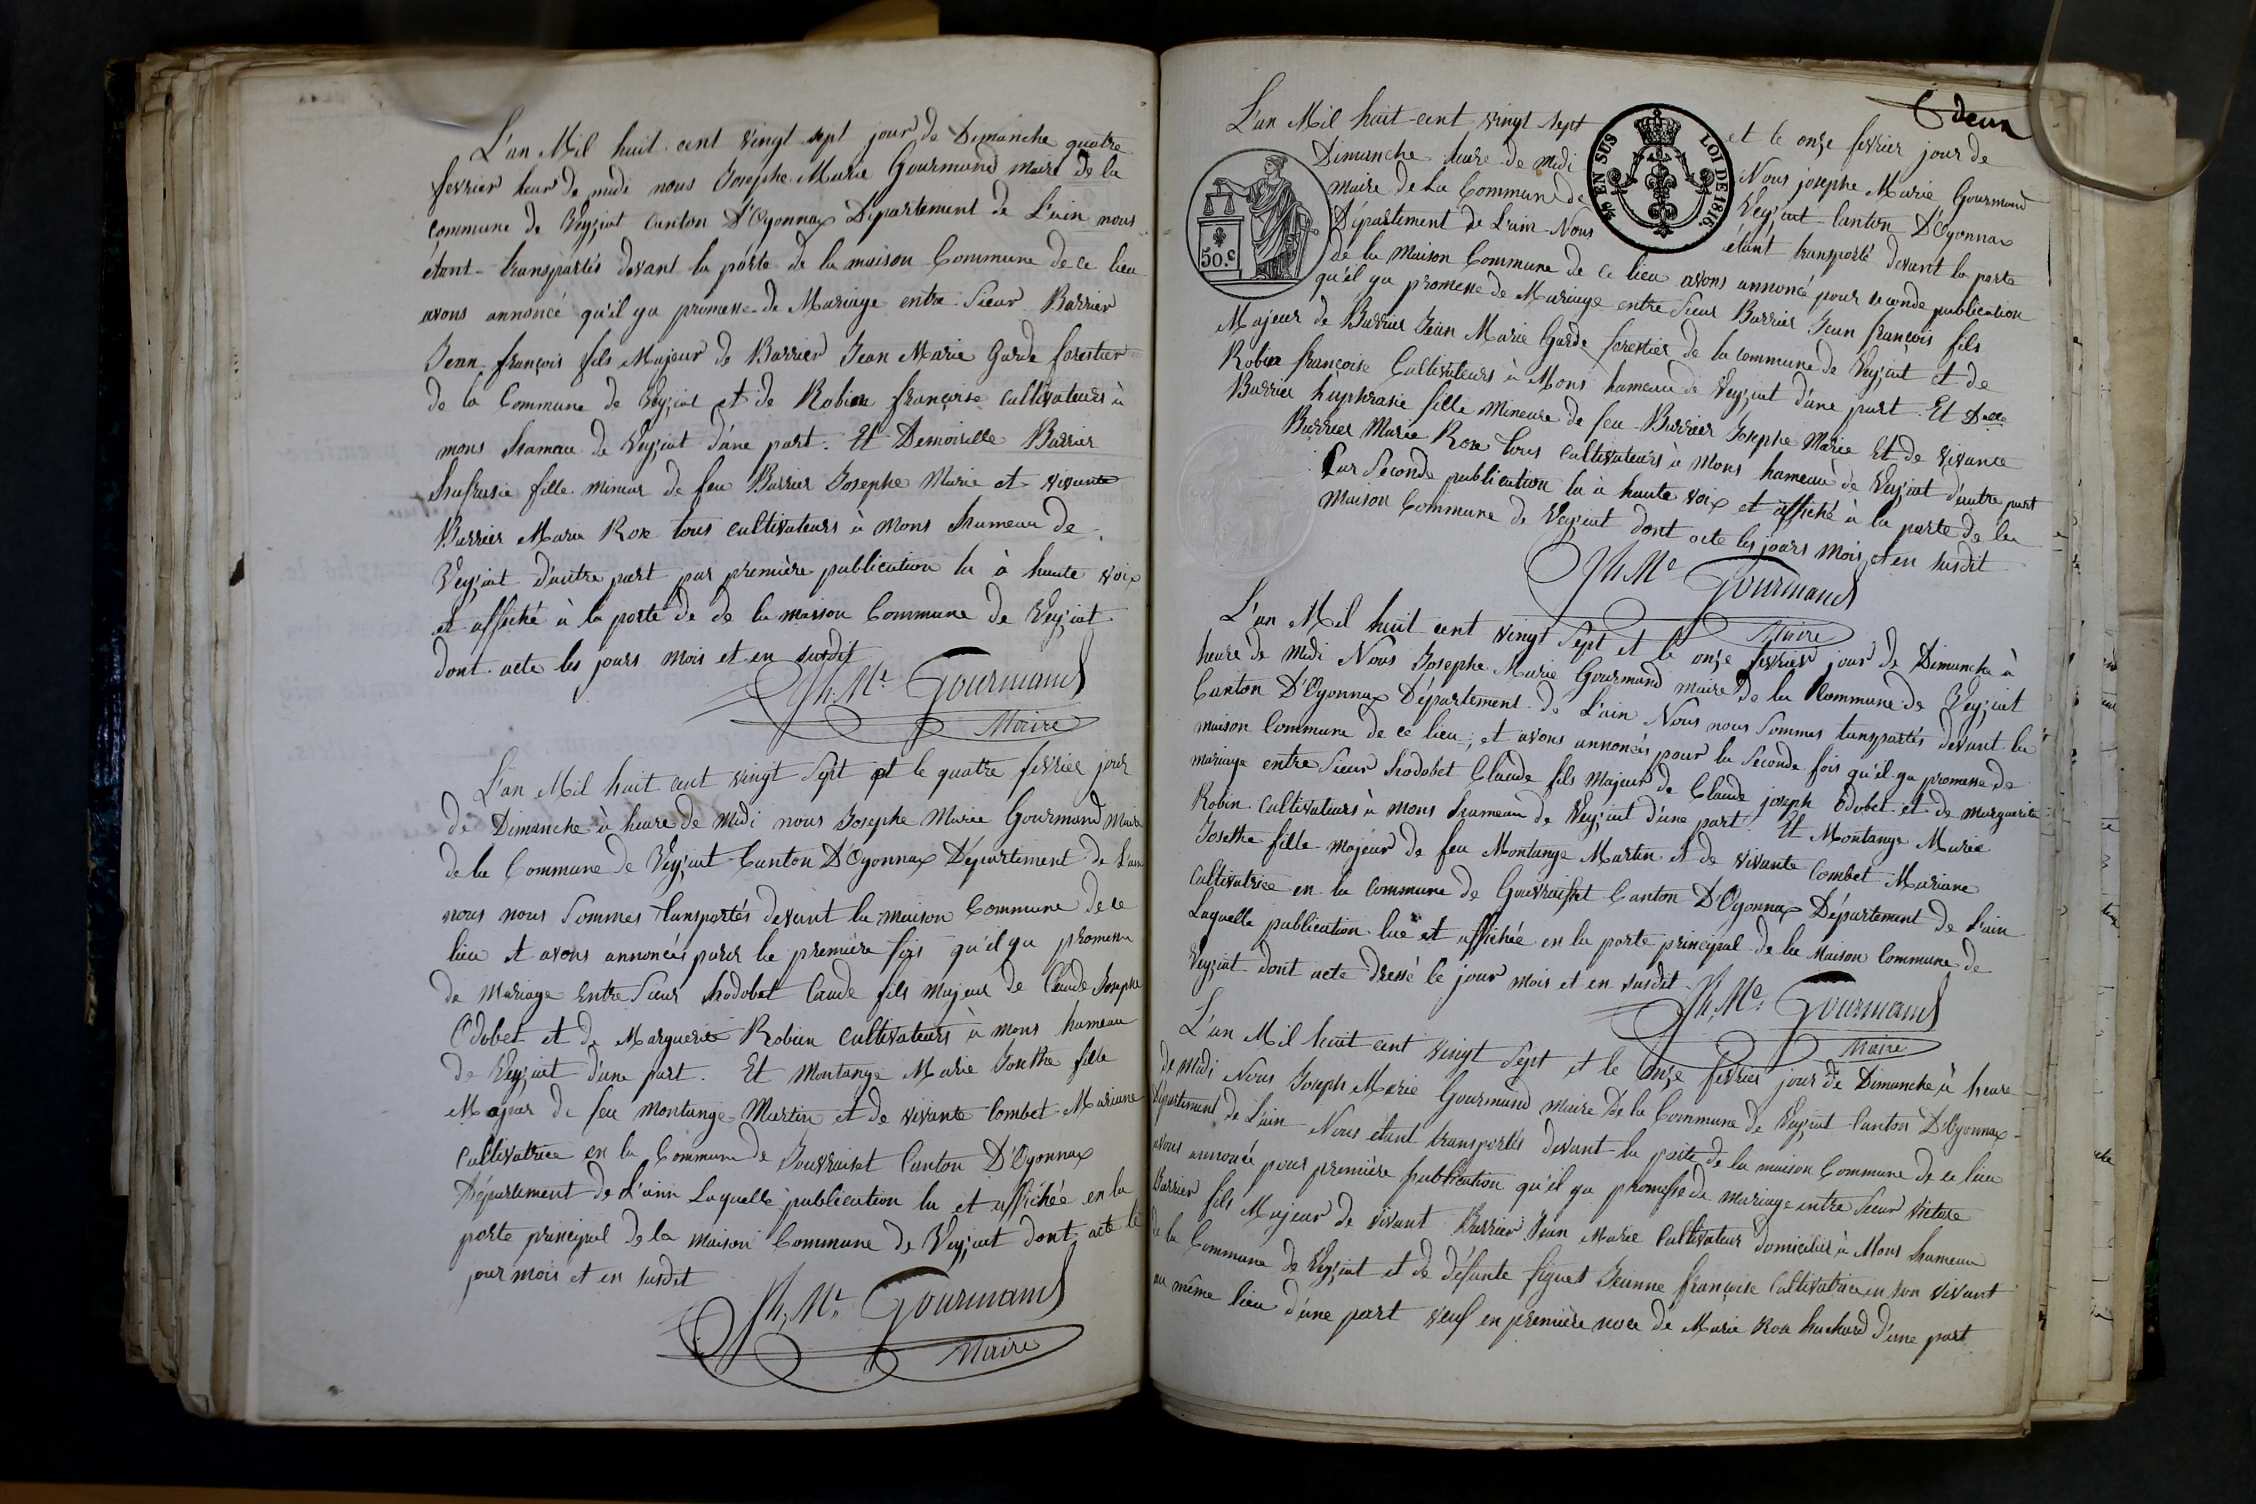 L'an Mil huit cent vingt sept jour de Dimanche quatre
fevrier heur de midi nous Josephe Marie Gourmand maire de la
commune de Veyziat canton D'Oyonnax Département de L'ain nous
étant transportés devant la porte de la maison Commune de ce lieu
avons annoncé qu'il ya promesse de Mariage entre Sieur Barrier
Jean françois fils Majeur de Barrier Jean Marie Garde forestier
de la Commune de Veyziat et de Robin françoise cultivateurs à
mons hameau de Veyziat d'une part. Et Demoiselle Barrier
fille mineur de feu Barrier Josephe Marie et vivante
Barrier Marie Rose tous cultivateurs à Mons hameau de
Veyziat d'autre part par première publication lu à haute voix
et affiché à la porte de de la maison Commune de Veyziat
dont acte les jours mois et en susdit
Jh. Me. Gourmand
Maire
L'an Mil huit cent vingt Sept et le quatre fevrier jour
de Dimanche à heure de Midi nous Josephe Marie Gourmand Maire
de la Commune de Veyziat Canton D'Oyonnax Département de L'ain
nous nous Sommes tansportés devant la maison Commune de ce
lieu et avons annoncés pour la première fois qu'il ya promesse
de Mariage Entre Sieur hodobet Caude fils Majeur de Claude Josephe
Odobet et de Marguerie Robin cultivateurs à mons hameau
de Veyziat d'une part. Et Montange Marie Josethe fille
Majeur de feu Montange Martin et de vivante Combet Mariane
Cultivatrice en la Commune de Gouvraisset Canton D'Oyonnax
Département de L'ain Laquelle publication lu et affichée en la
porte principal de la maison Commune de Veyziat dont acte le
jour mois et en susdit
Jh. Me. Gourmand
Maire
deux
L'an Mil huit cent vingt Sept et le onze fevrier jour de
Dimanche heure de midi Nous josephe Marie Gourmand
maire de La Commun de Veyziat Canton D'Oyonnax
Département de L'ain Nous étant transporté devant la porte
de la Maison Commune de ce lieu avons annoncé pour seconde publication
qu'il ya promesse de Mariage entre Sieur Barrier Jean françois fils
Majeur de Barrier Jean Marie Garde forestier de la commune de Veyziat et de
Robin françoise Cultivateurs à Mons hameau de Veyziat d'une part. Et Delle
Barrier huphrasie fille Mineure de feu Barrier Josephe Marie Et de vivance
Barrier Marie Rose tous cultivateurs à Mons hameau de Veyziat d'autre part
Par Seconde publication lu à haute voix et affiché à la porte de la
maison Commune de Veyziat dont acte les jours Mois et en susdit
50.c
50 EN SUS
LOI DE 1816.
Jh. Me Gourmand
Maire
L'an Mil huit cent vingt Sept et le onze fevrier jour de Dimanche à
heure de Midi Nous Josephe Marie Gourmand maire de la Commune de Veyziat
Canton D'Oyonnax Département de L'ain Nous nous Sommes tansportés devant la
maison Commune de ce lieu; et avons annoncés pour la Seconde fois qu'il ya promesse de
mariage entre Sieur hodobet Claude fils Majeur de Claude joseph Odobet et de marguerite
Robin cultivateurs à mons hameau de Veyziat d'une part. Et Montange Marie
Josethe fille majeur de feu Montange Martin et de vivante Combet Mariane
cultivatrice en la commune de Gouvraisset Canton D'Oyonnax Département de L'ain
Laquelle publication lue et affichée en la porte principal de la Maison Commune de
Veyziat dont acte dressé le jour mois et en susdit
Jh. Me. Gourmand
Maire
L'an Mil huit cent vingt Sept et le onze fevrier jour de Dimanche à heure
de midi Nous Joseph Marie Gourmand maire de la Commune de Veyziat Canton D'Oyonnax
Département de L'ain Nous etant transportés devant la porte de la maison Commune de ce lieu
avons annoncé pour première publication qu'il ya promesse de mariage entre Sieur Victore
Barrier fils Majeur de vivant Barrier Jean Marie Cultivateur domicilié à Mons hameau
de la Commune de Veyziat et de défunte figuet Jeanne françoise Cultivatrice en son vivant
au même lieu d'une part veuf en première noce de Marie Rose huchard d'une part